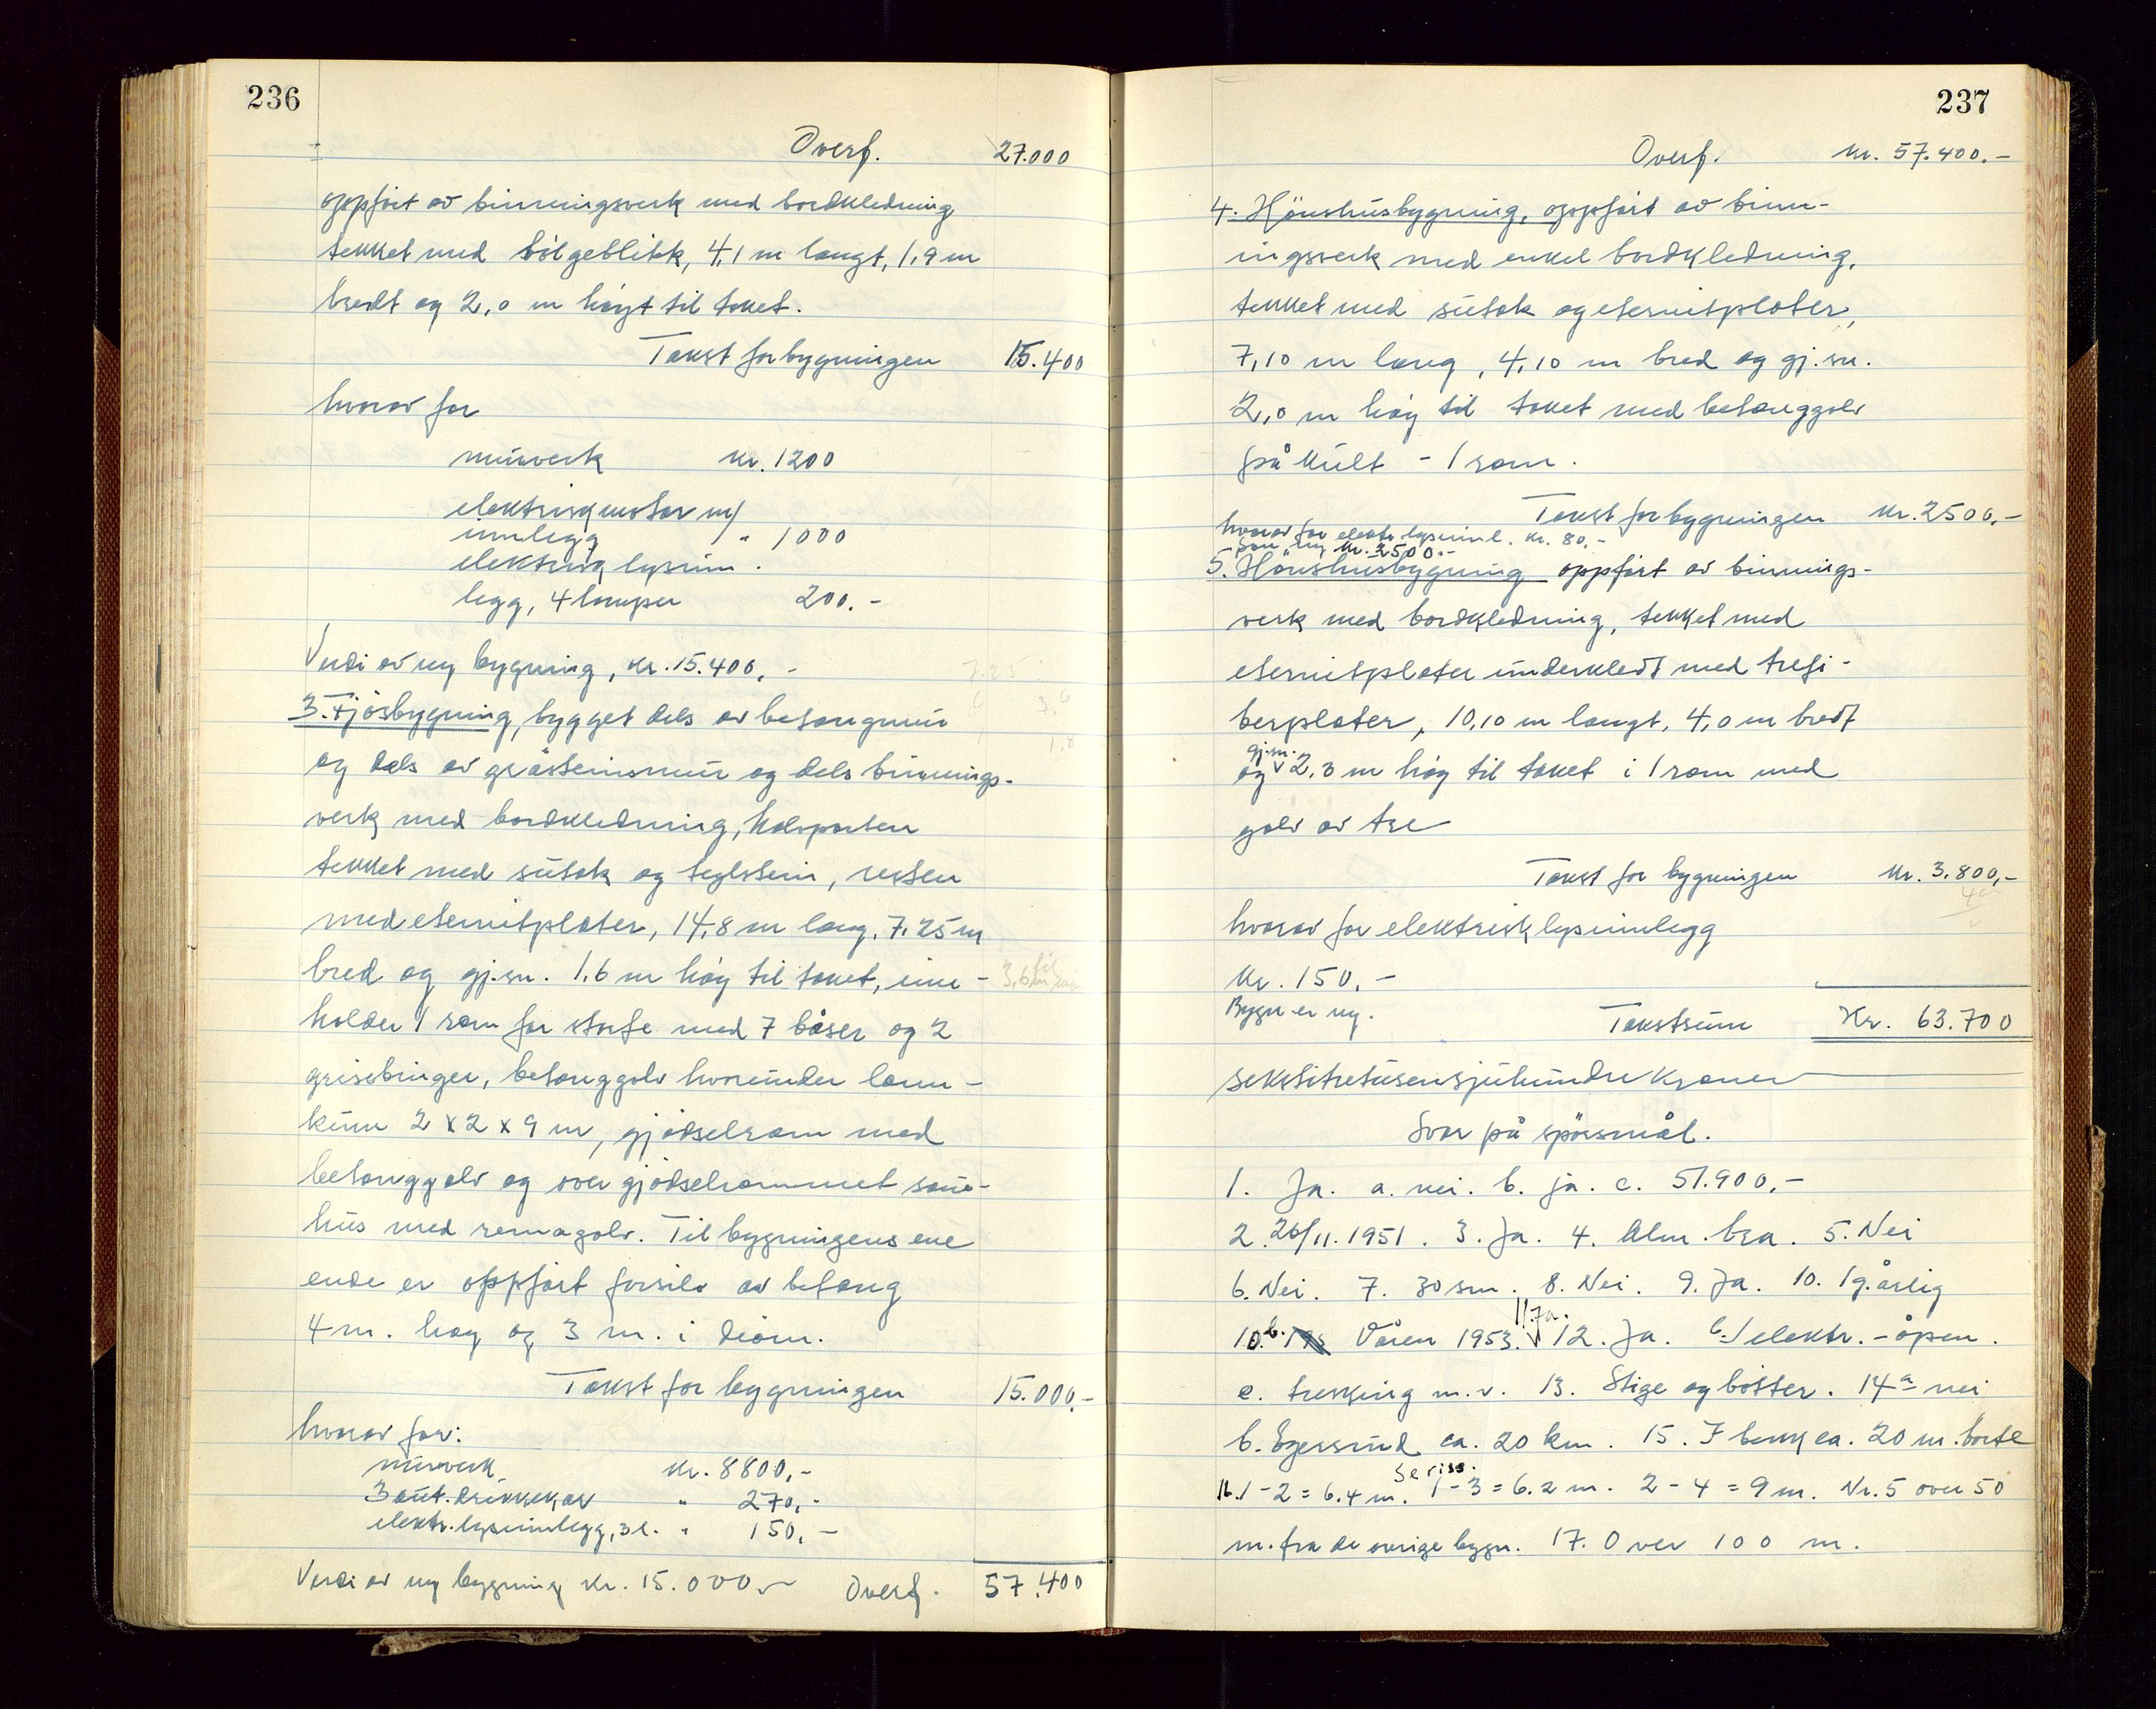 236
Overf. 27.000
oppført av binningsverk med bordkledning
tekket med bölgeblikk, 4,1 m langt, 1,9 m
bredt og 2,0 m høyt til taket.
Takst for bygningen 15.400
hvorav for
murverk kr. 1200
elektrisk motor m/
innlegg " 1000
elektrisk lysinn-
legg, 4 lamper 200.-
Verdi av ny bygning, kr. 15.400,-
3. Fjösbygning, bygget dels av betongmur
og dels av gråsteinsmur og dels binnings-
verk med bordkledning, halvparten
tekket med sutak og teglstein, resten
med eternitplater, 14,8 m lang, 7,25 m
bred og gj.sn. 1,6 m høy til taket, inne-
holder 1 rom for storfe med 7 båser og 2
grisebinger, betonggolv hvorunder land-
kum 2 x 2 x 9 m, gjødselrom med
betonggolv og over gjødselrommet saue-
hus med remagolv. Til bygningens ene
ende er oppført forsilo av betong
4 m. høy og 3 m. i diam.
Takst for bygningen 15.000,-
hvorav for:
murverk kr. 8800,-
3 aut. drikkekar " 270,-
elektr. lysinnlegg, 3 l. " 150,-
Verdi av ny bygning kr. 15.000.- Overf. 57.400
237
Overf. kr. 57.400.-
4. Hönshusbygning, oppført av binn-
ingsverk med enkel bordkledning,
tekket med sutak og eternitplater,
7,10 m lang, 4,10 m bred og gj.sn.
2,0 m høy til taket med betonggolv
på kult - 1 rom.
Takst for bygningen kr. 2500,-
hvorav for elektr. lysinnl. kr. 80.-
Som ny kr. 2500.-
5. Hönshusbygning oppført av binnings-
verk med bordkledning, tekket med
eternitplater underkledt med trefi-
berplater, 10,10 m langt, 4,0 m bredt
og gj.sn. 2,3 m høy til taket i 1 rom med
golv av tre
Takst for bygningen kr. 3.800,-
hvorav for elektrisk lysinnlegg
kr. 150,-
Bygn er ny.
Takstsum Kr. 63.700
sekstitretusensjuhundre kroner
Svar på spörsmål.
1. Ja. a. nei. b. ja. c. 51.900,-
2. 26/11.1951. 3. Ja. 4. Alm. bra. 5. Nei
6. Nei. 7. 30 sm. 8. Nei. 9. Ja. 10. 1 g. årlig
10.b. Våren 1953. 11. Ja. 12. Ja. b. 1 elektr. - åpen.
c. tresking m.v. 13. Stige og bötter. 14 a nei
b. Egersund ca. 20 km. 15. I bekk ca. 20 m. borte
16. 1-2 = 6.4 m. 1-3 = 6.2 m. 2-4 = 9 m. Nr. 5 over 50
m. fra de øvrige bygn. 17. Over 100 m.